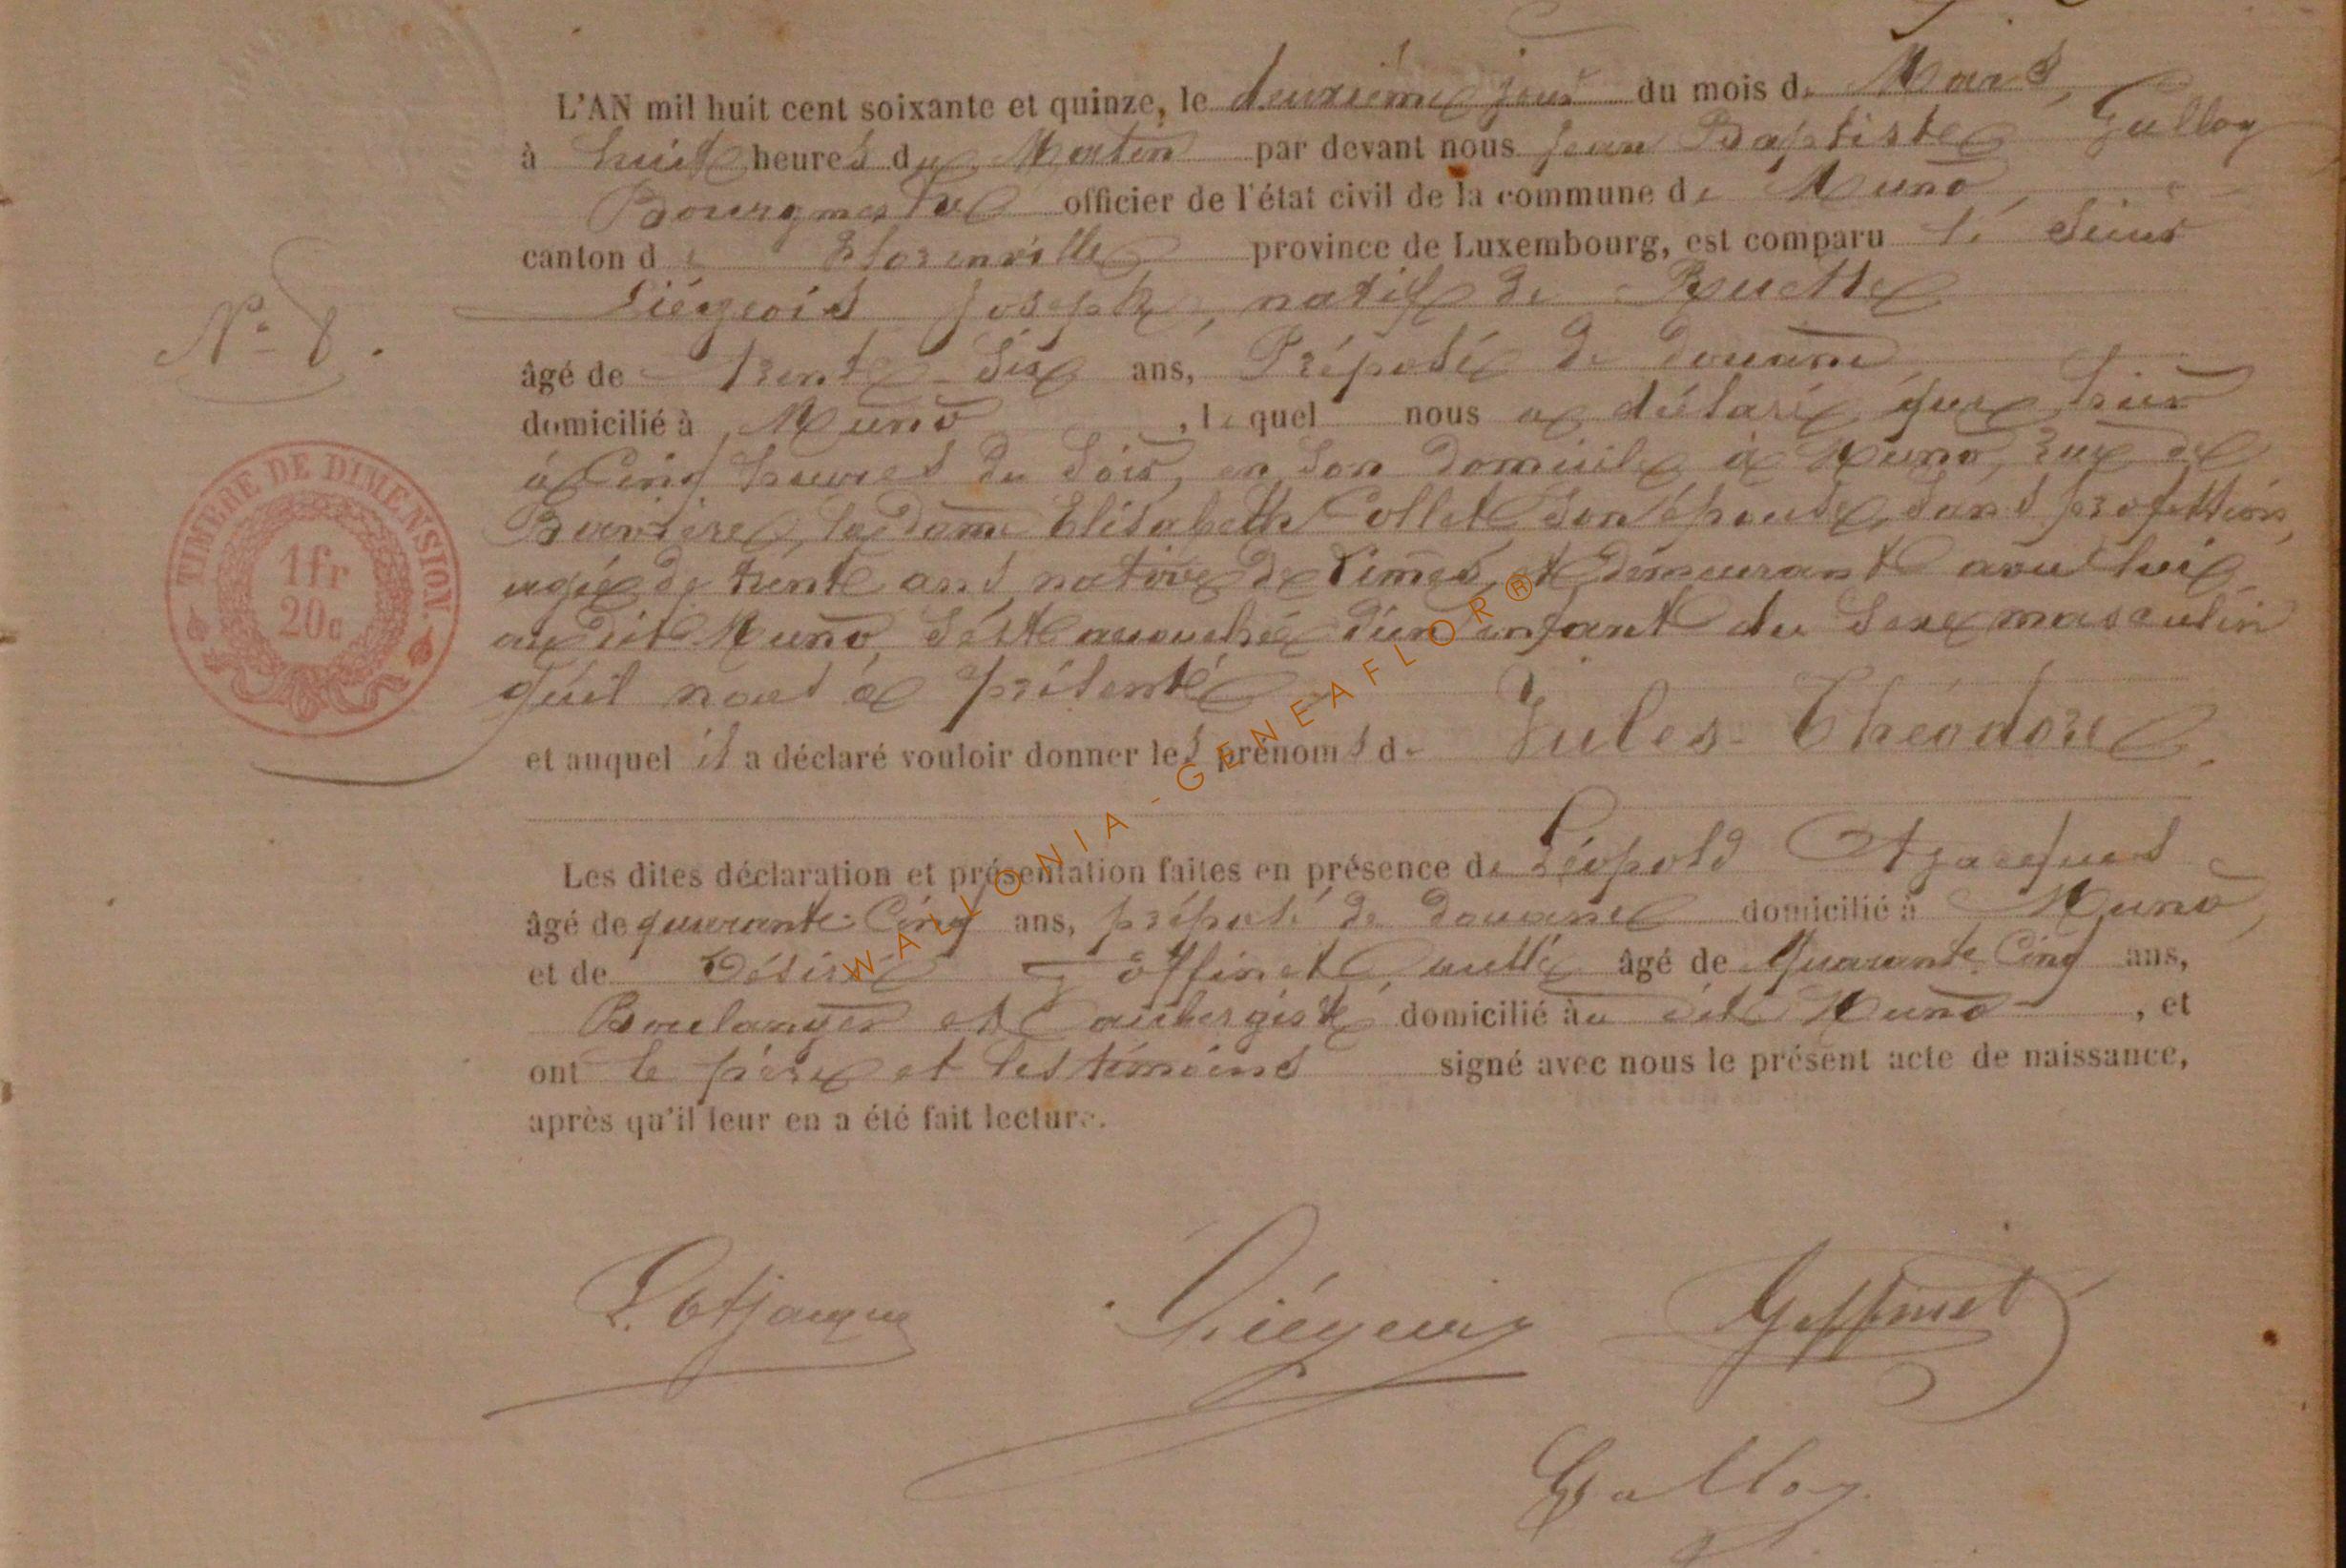 L'AN mil huit cent soixante et quinze, le deuxième jour du mois de Mars,
à huit heures du Matin par devant nous Jean Baptiste Galloy
Bourgmestre officier de l'état civil de la commune de Muno,
canton de Florenville province de Luxembourg, est comparu le Sieur
Liégeois Joseph, natif de Ruette
N° 8.
âgé de trente-six ans, Préposé de douane
domicilié à Muno, lequel nous a déclaré que hier
à Cinq heures du Soir, en son domicile à Muno, rue de
Barrière, la dame Elisabeth Collet son épouse, sans profession,
agée de trente ans native de et demeurant avec lui
au dit Muno, s'est accouchée d'un enfant du sexe masculin
qu'il nous a présenté
et auquel il a déclaré vouloir donner les prénoms de Jules-Théodore.
TIMBRE DE DIMENSION.
1fr
20c
Les dites déclaration et présentation faites en présence de Léopold Otjacques
âgé de quarante-Cinq ans, préposé de douane domicilié à Muno,
et de Désiré Goffinet, âgé de Quarante Cinq ans,
Boulanger et aubergiste domicilié au dit Muno, et
ont le père et les témoins signé avec nous le présent acte de naissance,
après qu'il leur en a été fait lecture.
L. Otjacques Liégeois Goffinet
Galloy
WALLONIA - GENEAFLOR®